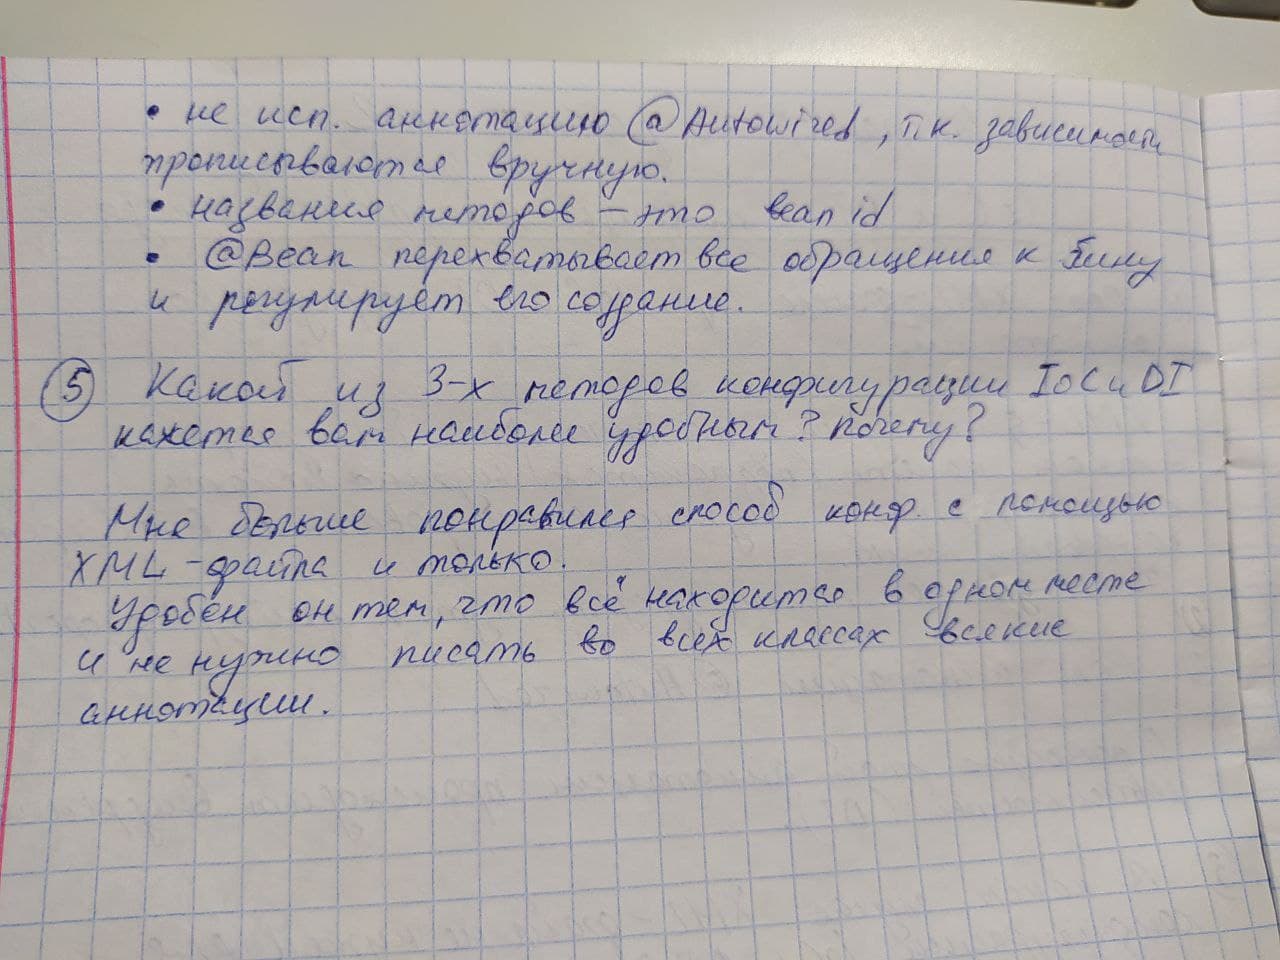 • не исп. аннотацию @Autowired, т.к. зависимости
прописываются вручную.
• названия методов – это bean id
• @Bean перехватывает все обращения к бину
и регулирует его создание.
5 Какой из 3-х методов конфигурации IoC и DI
кажется вам наиболее удобным? Почему?
Мне больше понравился способ конф. с помощью
XML-файла и только.
Удобен он тем, что всё находится в одном месте
и не нужно писать во всех классах всякие
аннотации.